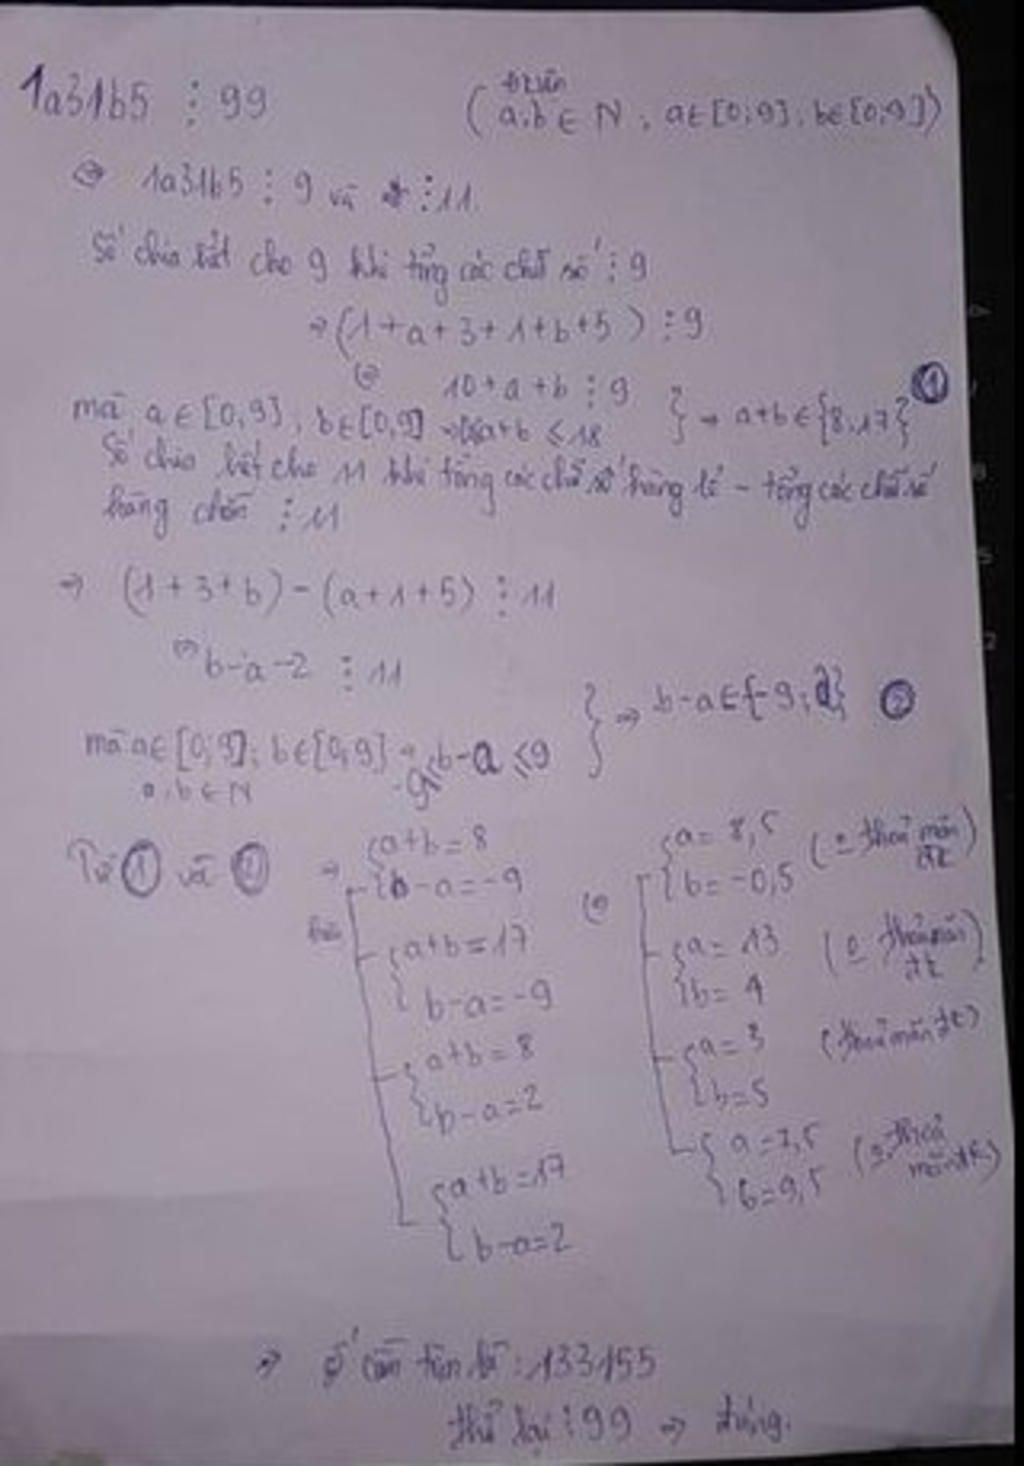 1a31b5 ⋮ 99 ( a,b ∈ N , a∈[0;9] , b∈[0;9])
⇔ 1a31b5 ⋮ 9 và ⋮ 11.
Số chia hết cho 9 khi tổng các chữ số ⋮ 9
⇒ (1+a+3+1+b+5) ⋮ 9
⇔ 10+a+b ⋮ 9
mà a∈[0,9], b∈[0,9] ⇒ a+b ≤ 18 } ⇒ a+b ∈ {8;17} ①
Số chia hết cho 11 khi tổng các chữ số hàng lẻ – tổng các chữ số
hàng chẵn ⋮ 11
⇒ (1+3+b) – (a+1+5) ⋮ 11
⇔ b-a-2 ⋮ 11
mà a∈[0;9]; b∈[0,9] ⇒ -9≤b-a≤9 } ⇒ b-a∈{-9;2} ②
a,b ∈ N
Từ ① và ② ⇒
{ a+b=8
b-a=-9
{ a+b=17
b-a=-9
{ a+b=8
b-a=2
{ a+b=17
b-a=2
⇔
{ a=8,5
b=-0,5 ( thoả mãn đk)
{ a=13
b=4 ( thoả mãn đk)
{ a=3
b=5 (thoả mãn đk)
{ a=7,5
b=9,5 ( thoả mãn đk)
⇒ số cần tìm là : 133155
thử lại ⋮ 99 ⇒ đúng.